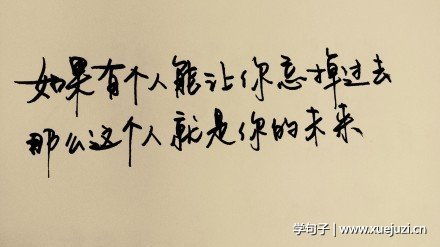 如果有个人能让你忘掉过去
那么这个人就是你的未来
学句子 | www.xuejuzi.cn